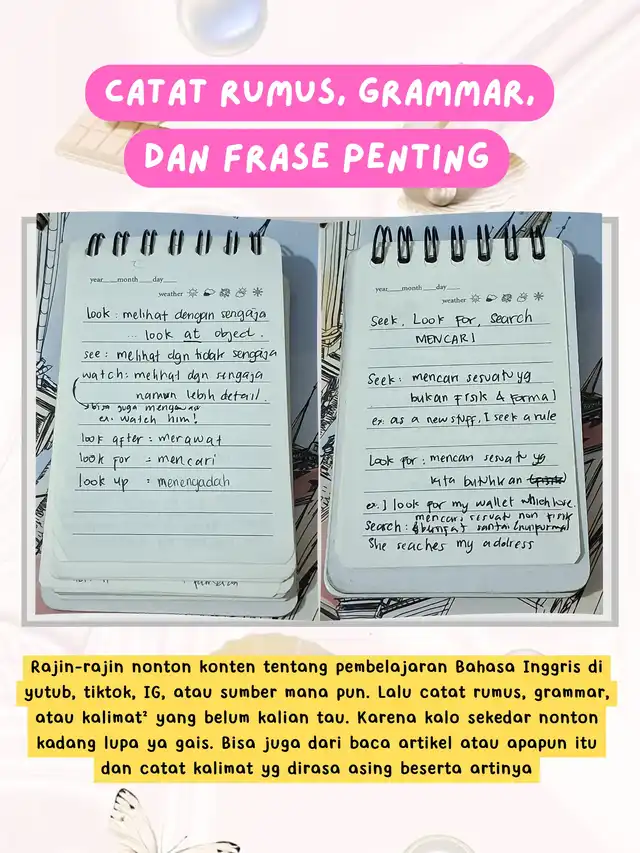 CATAT RUMUS, GRAMMAR,
DAN FRASE PENTING
year month day
weather
look : melihat dengan sengaja
... look at object.
see : melihat dgn tidak sengaja
watch : melihat dgn sengaja
namun lebih detail.
bisa juga
ex: watch him!
look after : merawat
look for : mencari
look up : menengadah
year month day
weather
Seek, Look For, Search
MENCARI
Seek : mencari sesuatu yg
bukan fisik & formal
ex: as a new stuff, I seek a rule
Look for : mencari sesuatu yg
kita butuhkan
ex: I look for my wallet which lose.
mencari sesuatu non fisik
Search : bersifat santai
She seaches my address
Rajin-rajin nonton konten tentang pembelajaran Bahasa Inggris di
yutub, tiktok, IG, atau sumber mana pun. Lalu catat rumus, grammar,
atau kalimat² yang belum kalian tau. Karena kalo sekedar nonton
kadang lupa ya gais. Bisa juga dari baca artikel atau apapun itu
dan catat kalimat yg dirasa asing beserta artinya